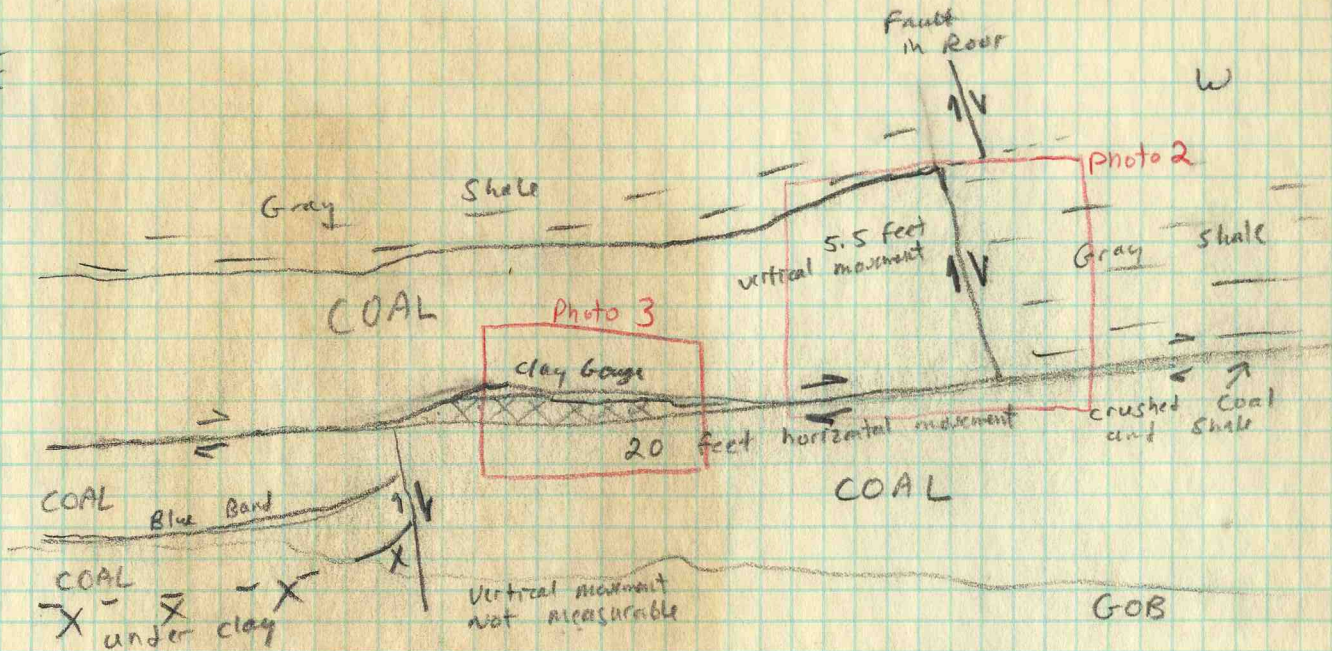 Fault
in Roof
W
Photo 2
Gray Shale
5.5 feet
vertical movement
Gray Shale
COAL
Photo 3
Clay Gouge
20 feet horizontal movement
crushed Coal
and Shale
COAL
COAL
Blue Band
COAL
under clay
vertical movement
Not measurable
GOB